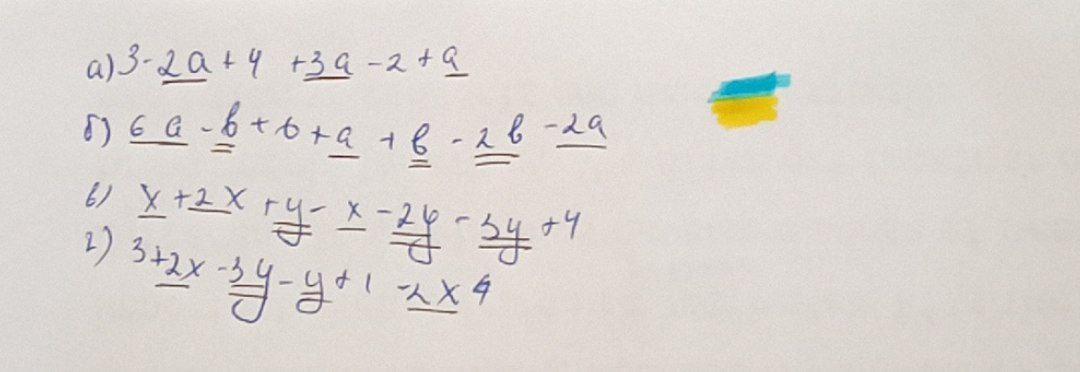 а) 3-2a+4 +3a -2+a
б) 6a -b+6+a +b -2b -2a
в) x+2x+y-x-2y-3y+4
г) 3+2x-3y-y+1 -2x 4